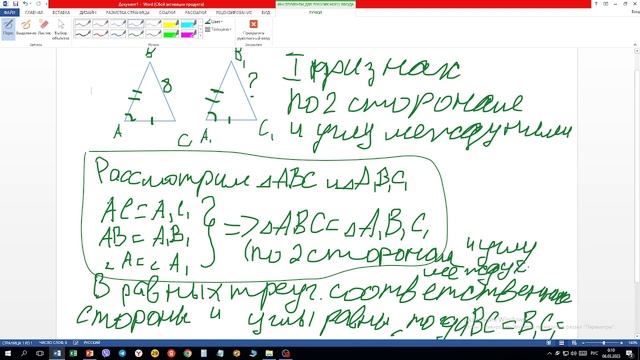 Документ1 - Word (Сбой активации продукта)
ИНСТРУМЕНТЫ ДЛЯ РУКОПИСНОГО ВВОДА
ФАЙЛ ГЛАВНАЯ ВСТАВКА ДИЗАЙН РАЗМЕТКА СТРАНИЦЫ ССЫЛКИ РАССЫЛКИ РЕЦЕНЗИРОВАНИЕ ВИД ПЕРЬЯ
Перо Выделение Ластик Выбор объектов
Цвет
Толщина
Прекратить рукописный ввод
B B1
8 ?
A C A1 C1
I признак
по 2 сторонам
и углу между ними
Рассмотрим △ABC и △A1B1C1
AC = A1C1
AB = A1B1 => △ABC = △A1B1C1
∠A = ∠A1 (по 2 сторонам и углу
между
В равных треуг. соответственные
стороны и углы равны, тогда BC = B1C1 =
СТРАНИЦА 1 ИЗ 1 ЧИСЛО СЛОВ: 0 РУССКИЙ
РУС
06.05.2023